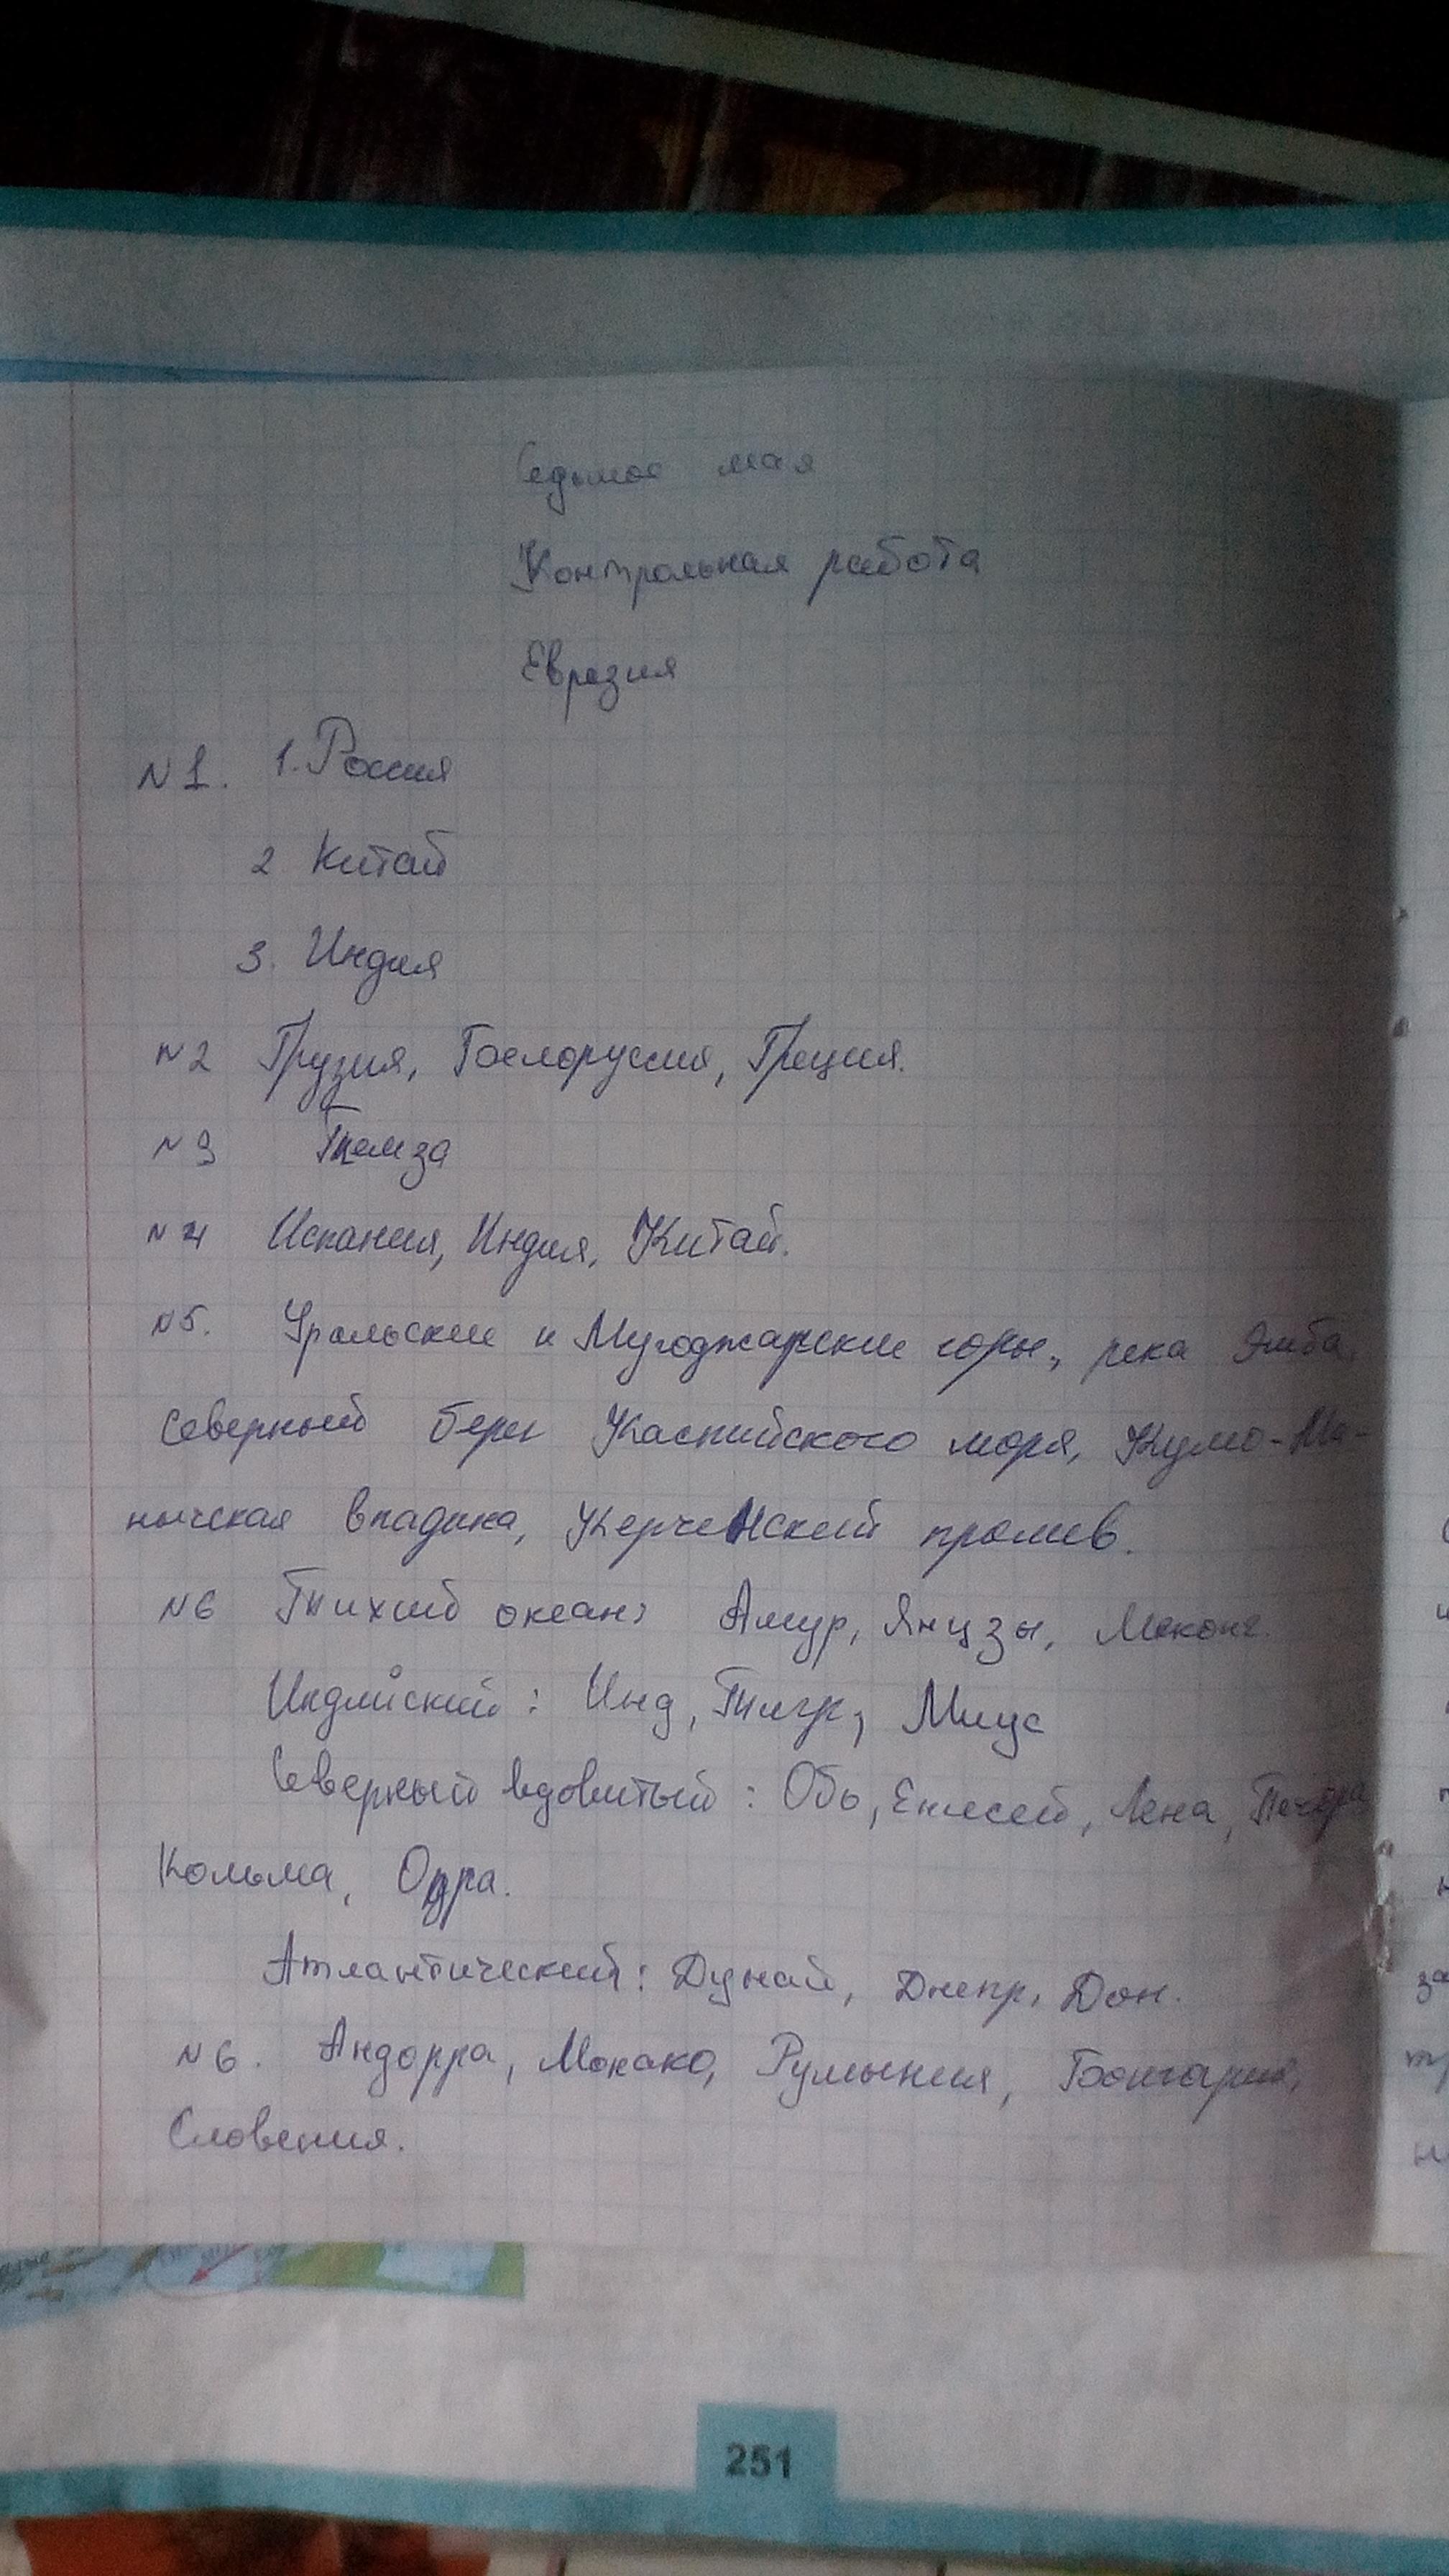 Седьмое мая
Контрольная работа
Евразия
N1. 1. Россия
2 Китай
3. Индия
N2 Грузия, Белоруссия, Греция.
N3 Темза
N4 Испания, Индия, Китай.
N5. Уральские и Мугоджарские горы, река Эмба,
северный берег Каспийского моря, Кумо-Ма-
нычская впадина, Керченский пролив.
N6 Тихий океан: Амур, Янцзы, Меконг.
Индийский: Инд, Тигр,
Северный ядовитый: Обь, Енисей, Лена, Печора
Колыма, Одра.
Атлантический: Дунай, Днепр, Дон.
N6. Андорра, Монако, Румыния, Болгария,
Словения.
251